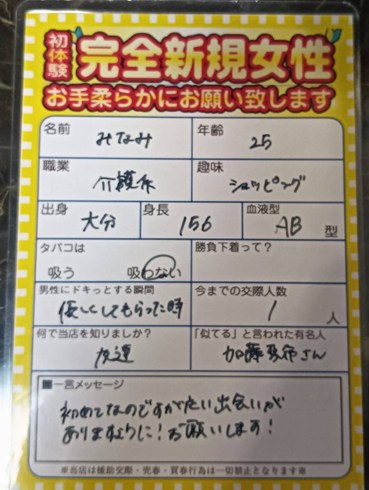 初体験
完全新規女性
お手柔らかにお願い致します
名前 みなみ 年齢 25
職業 介護系 趣味 ショッピング
出身 大分 身長 156 血液型 AB 型
タバコは 勝負下着って?
吸う 吸わない
男性にドキっとする瞬間 今までの交際人数
優しくしてもらった時 1 人
何で当店を知りましたか? 「似てる」と言われた有名人
友達 加藤 さん
■一言メッセージ
初めてなのですが良い出会いが
ありますように!お願いします!
※当店は援助交際・売春・買春行為は一切禁止となります※